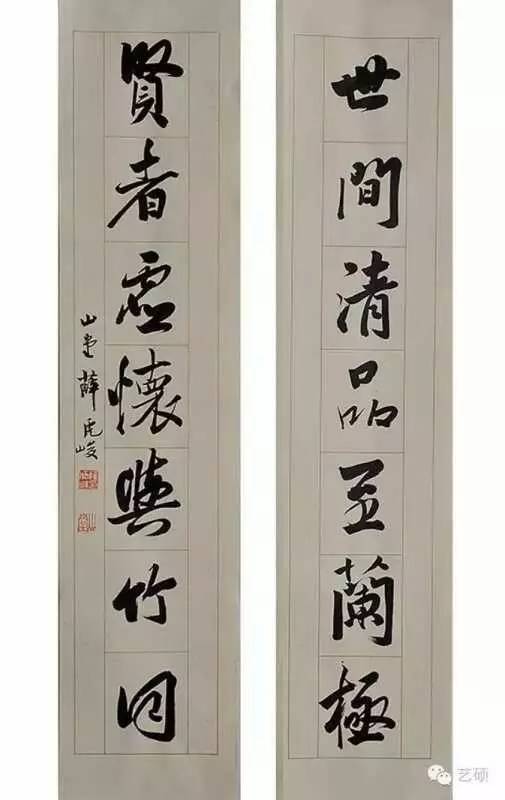 世間清品至蘭極
賢者虛懷與竹同
山堂薛虎峻
艺硕